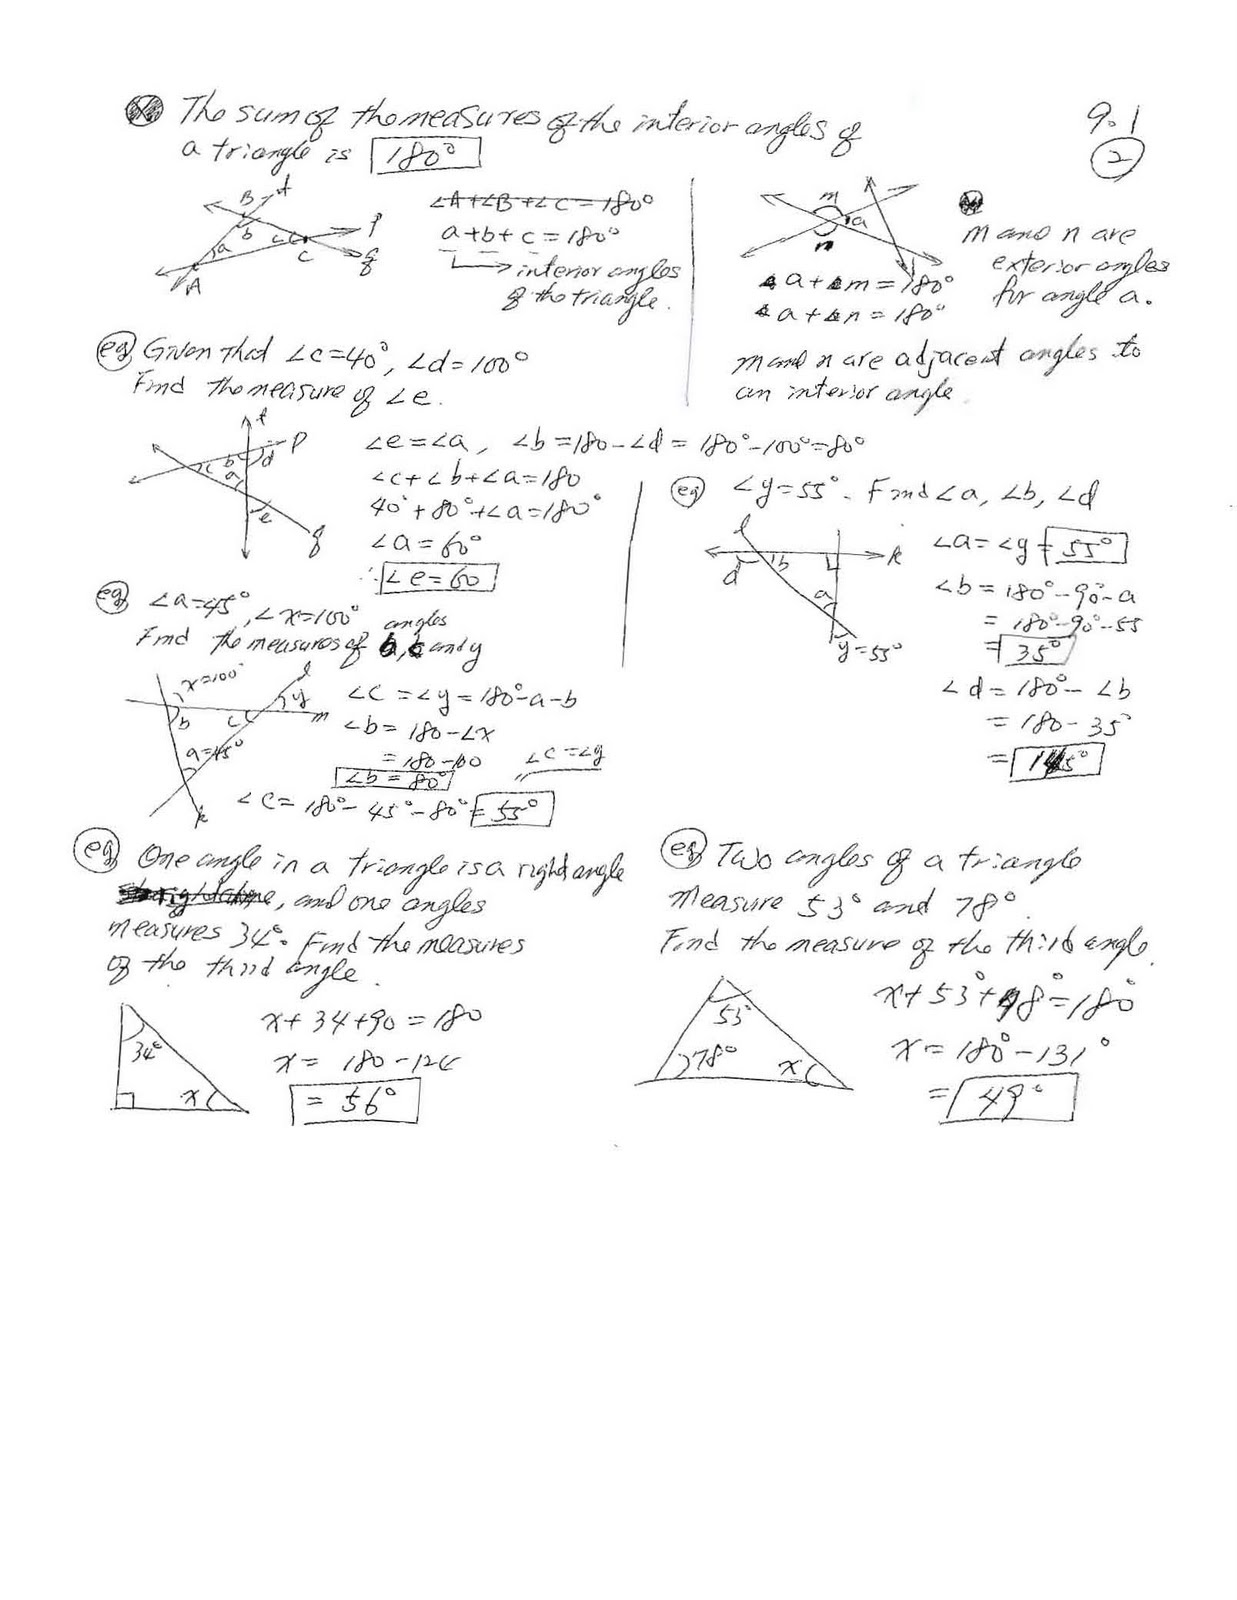 The sum of the measures of the interior angles of
a triangle is 180°
9.1
2
B t
b c P
a c q
A
∠A+∠B+∠C=180°
a+b+c=180°
interior angles
of the triangle.
m
a
n
∠a+∠m=180°
∠a+∠n=180°
m and n are
exterior angles
for angle a.
m and n are adjacent angles to
an interior angle.
eg Given that ∠c=40°, ∠d=100°
Find the measure of ∠e.
t
P
c b d
a
e
q
∠e=∠a, ∠b=180-∠d=180°-100°=80°
∠c+∠b+∠a=180
40°+80°+∠a=180°
∠a=60°
∴ ∠e=60
eg ∠y=55°. Find ∠a, ∠b, ∠d
l
k
d b
a
y=55°
∠a=∠y=55°
∠b=180°-90°-a
=180°-90°-55
=35°
∠d=180°-∠b
=180-35°
=145°
eg ∠a=45°, ∠x=100°
angles
Find the measures of b, c and y
x=100°
l
y
b c m
a=45°
k
∠c=∠y=180°-a-b
∠b=180-∠x
=180-100
∠b=80°
∠c=∠y
∠c=180°-45°-80°=55°
eg One angle in a triangle is a right angle
, and one angles
measures 34°. Find the measures
of the third angle.
34°
x
x+34+90=180
x= 180-124
=56°
eg Two angles of a triangle
measure 53° and 78°.
Find the measure of the third angle.
53°
78° x
x+53°+78°=180°
x=180°-131°
=49°